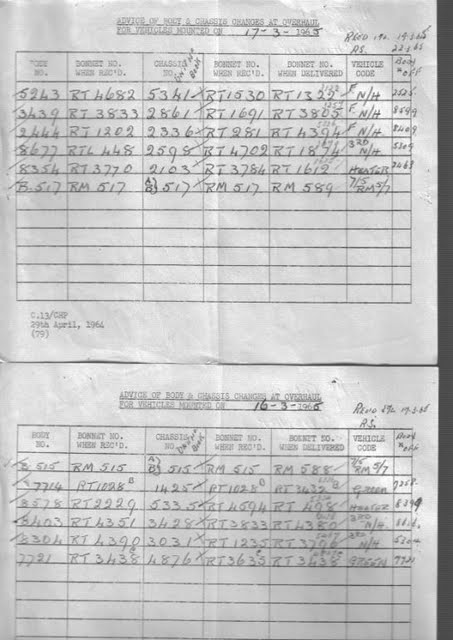 ADVICE OF BODY & CHASSIS CHANGES AT OVERHAUL
FOR VEHICLES MOUNTED ON 17-3-1965
BODY NO. BONNET NO. WHEN REC'D. CHASSIS NO. BONNET NO. WHEN REC'D. BONNET NO. WHEN DELIVERED VEHICLE CODE BODY OFF
5243 RT 4682 5341 RT 1530 RT 1329 F N/H
3439 RT 3833 2861 RT 1691 RT 3805 F N/H
2444 RT 1202 2336 RT 281 RT 4394 F N/H
8677 RTL 448 2598 RT 4702 RT 1874 N/H
8354 RT 3770 2103 RT 3784 RT 1612 HEATER
B.517 RM 517 517 RM 517 RM 589 RM 5/7
C.13/CHP
29th April, 1964
(79)
ADVICE OF BODY & CHASSIS CHANGES AT OVERHAUL
FOR VEHICLES MOUNTED ON 16-3-1965
BODY NO. BONNET NO. WHEN REC'D. CHASSIS NO. BONNET NO. WHEN REC'D. BONNET NO. WHEN DELIVERED VEHICLE CODE BODY OFF
515 RM 515 515 RM 515 RM 588 RM 5/7
7714 RT 1028 1425 RT 1028 RT 3432 GREEN
8578 RT 2229 5335 RT 4594 RT 498 HEATER
8403 RT 4351 3428 RT 3833 RT 4380 N/H
8304 RT 4390 3031 RT 1235 RT 3796 N/H
7721 RT 3438 4876 RT 3633 RT 3438 GREEN 7721